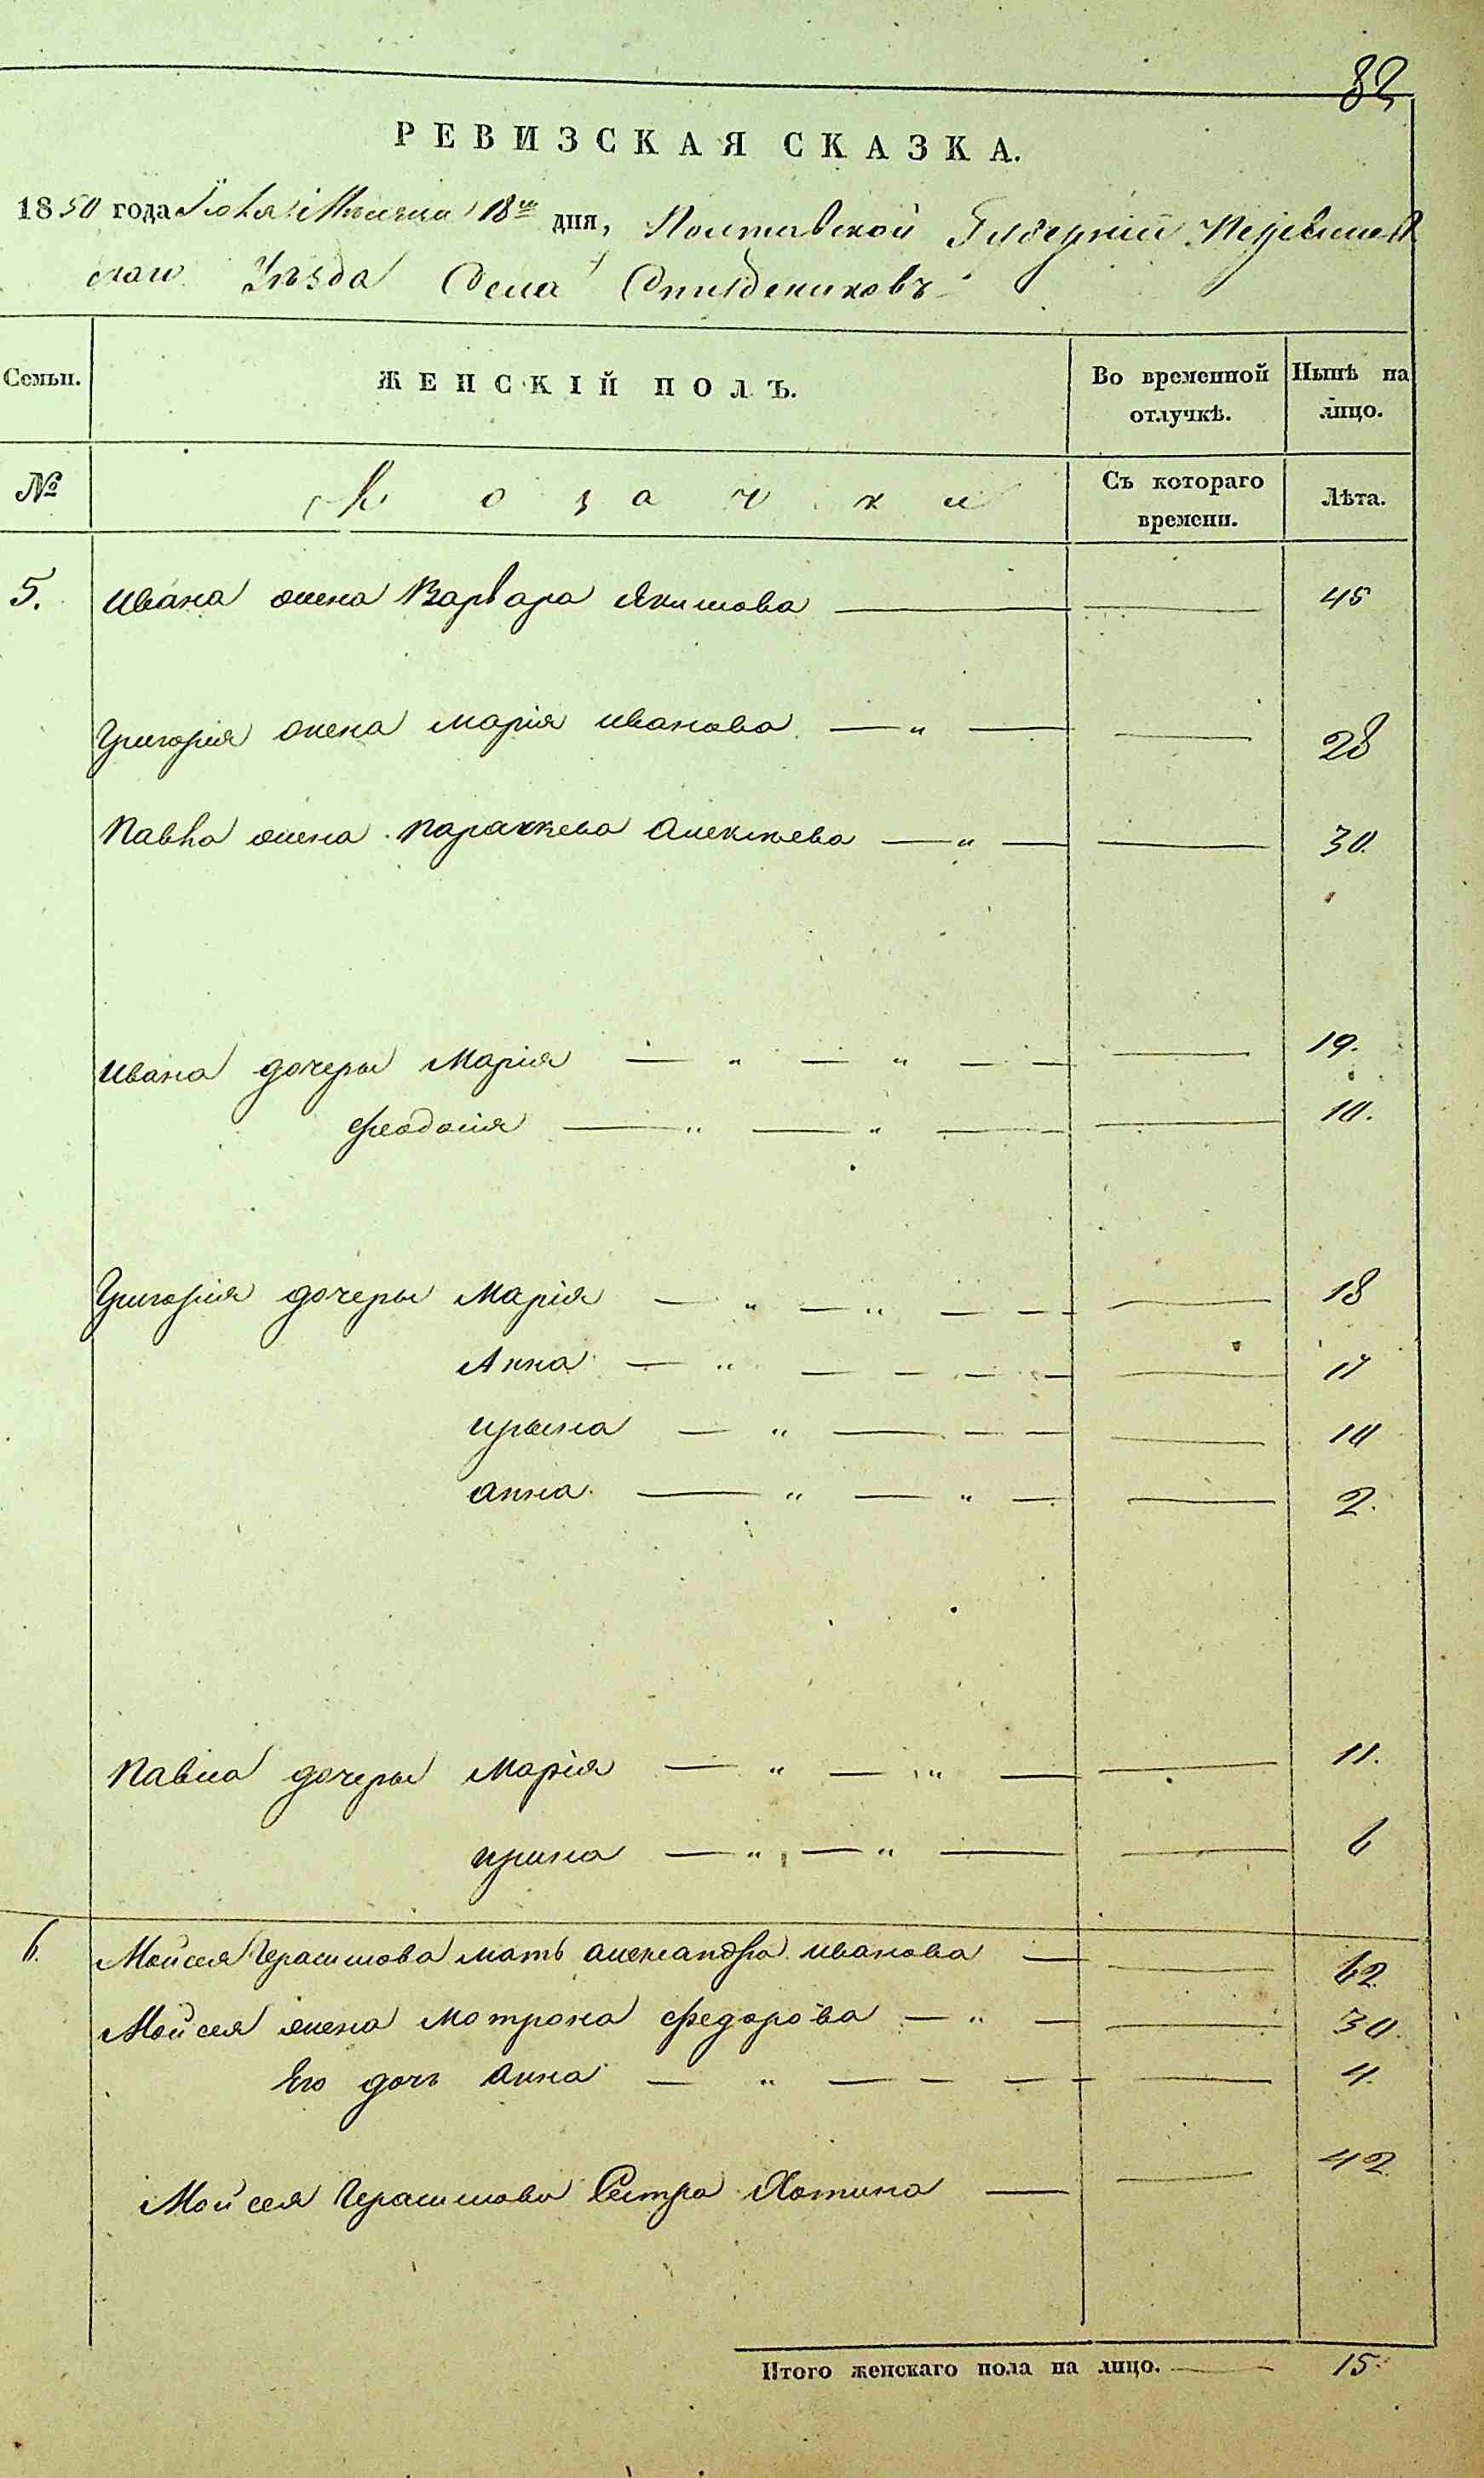 82
РЕВИЗСКАЯ СКАЗКА.
1850 года Іюля Мѣсяца 18го дня, Полтавской Губерніи
скаго Уѣзда Села
Семьи. ЖЕНСКІЙ ПОЛЪ. Во временной отлучкѣ. Нынѣ на лицо.
№ Козачки Съ котораго времени. Лѣта.
5. Ивана жена Варвара Якимова 45
Григорія жена Марія Иванова — " — 28
Павла жена Параскева Алексѣева — " — 30.
Ивана дочеры Марія — " — " — — 19.
Феодосія — " — " — 10.
Григорія дочеры Марія — " — " — — 18
Анна — " — — — — 17
Ирына — " — — — 10
Анна — " — " — 2.
Павла дочеры Марія — " — " — 11.
Ирина — " — " — 6
6. Мойсея Герасимова мать Александра Иванова — 62
Мойсея жена Мотрона Федорова — " — 30.
Его дочь Анна — " — — — — 4.
Мойсея Герасимова Сестра — 42
Итого женскаго пола на лицо. — 15.